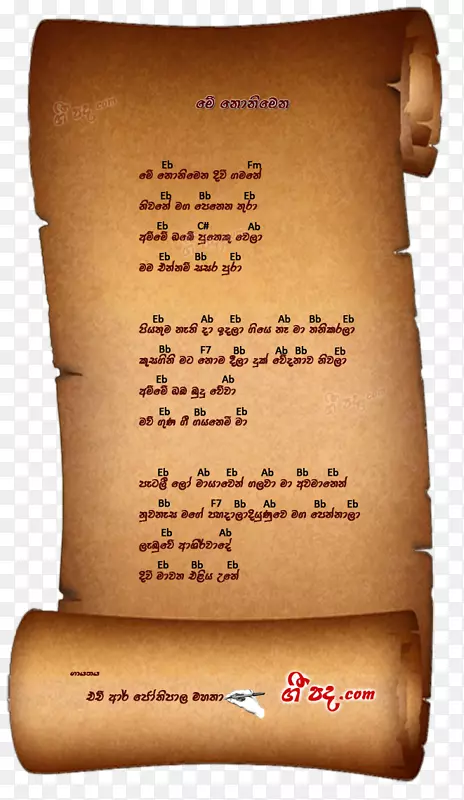 ගී පද.com
මේ නොනිමෙන
Eb Fm
මේ නොනිමෙන දිවි ගමනේ
Eb Bb Eb
නිවනේ මග පෙනෙන තුරා
Eb C# Ab
අම්මේ ඔබේ පුතෙකු වෙලා
Eb Bb Eb
මම එන්නම් සසර පුරා
Eb Ab Eb Ab Bb Eb
පියතුම නැති දා ඉදලා ගියෙ නෑ මා තනිකරලා
Bb F7 Bb Ab Bb Eb
කුසගිනි මට නොම දීලා දුක් වේදනාව නිවලා
Eb Ab
අම්මේ ඔබ බුදු වේවා
Eb Bb Eb
මව් ගුණ ගී ගයනෙමි මා
Eb Ab Eb Ab Bb Eb
පැටලී ලෝ මායාවෙන් ගලවා මා අවමානෙන්
Bb F7 Bb Ab Bb Eb
නුවනැස මගේ පහදාලාදියුණුවෙ මග පෙන්නාලා
Eb Ab
ලැබුවේ ආශිර්වාදේ
Eb Bb Eb
දිවි මාවත එළිය උනේ
ගායනය
එච් ආර් ජෝතිපාල මහතා
ගී පද.com